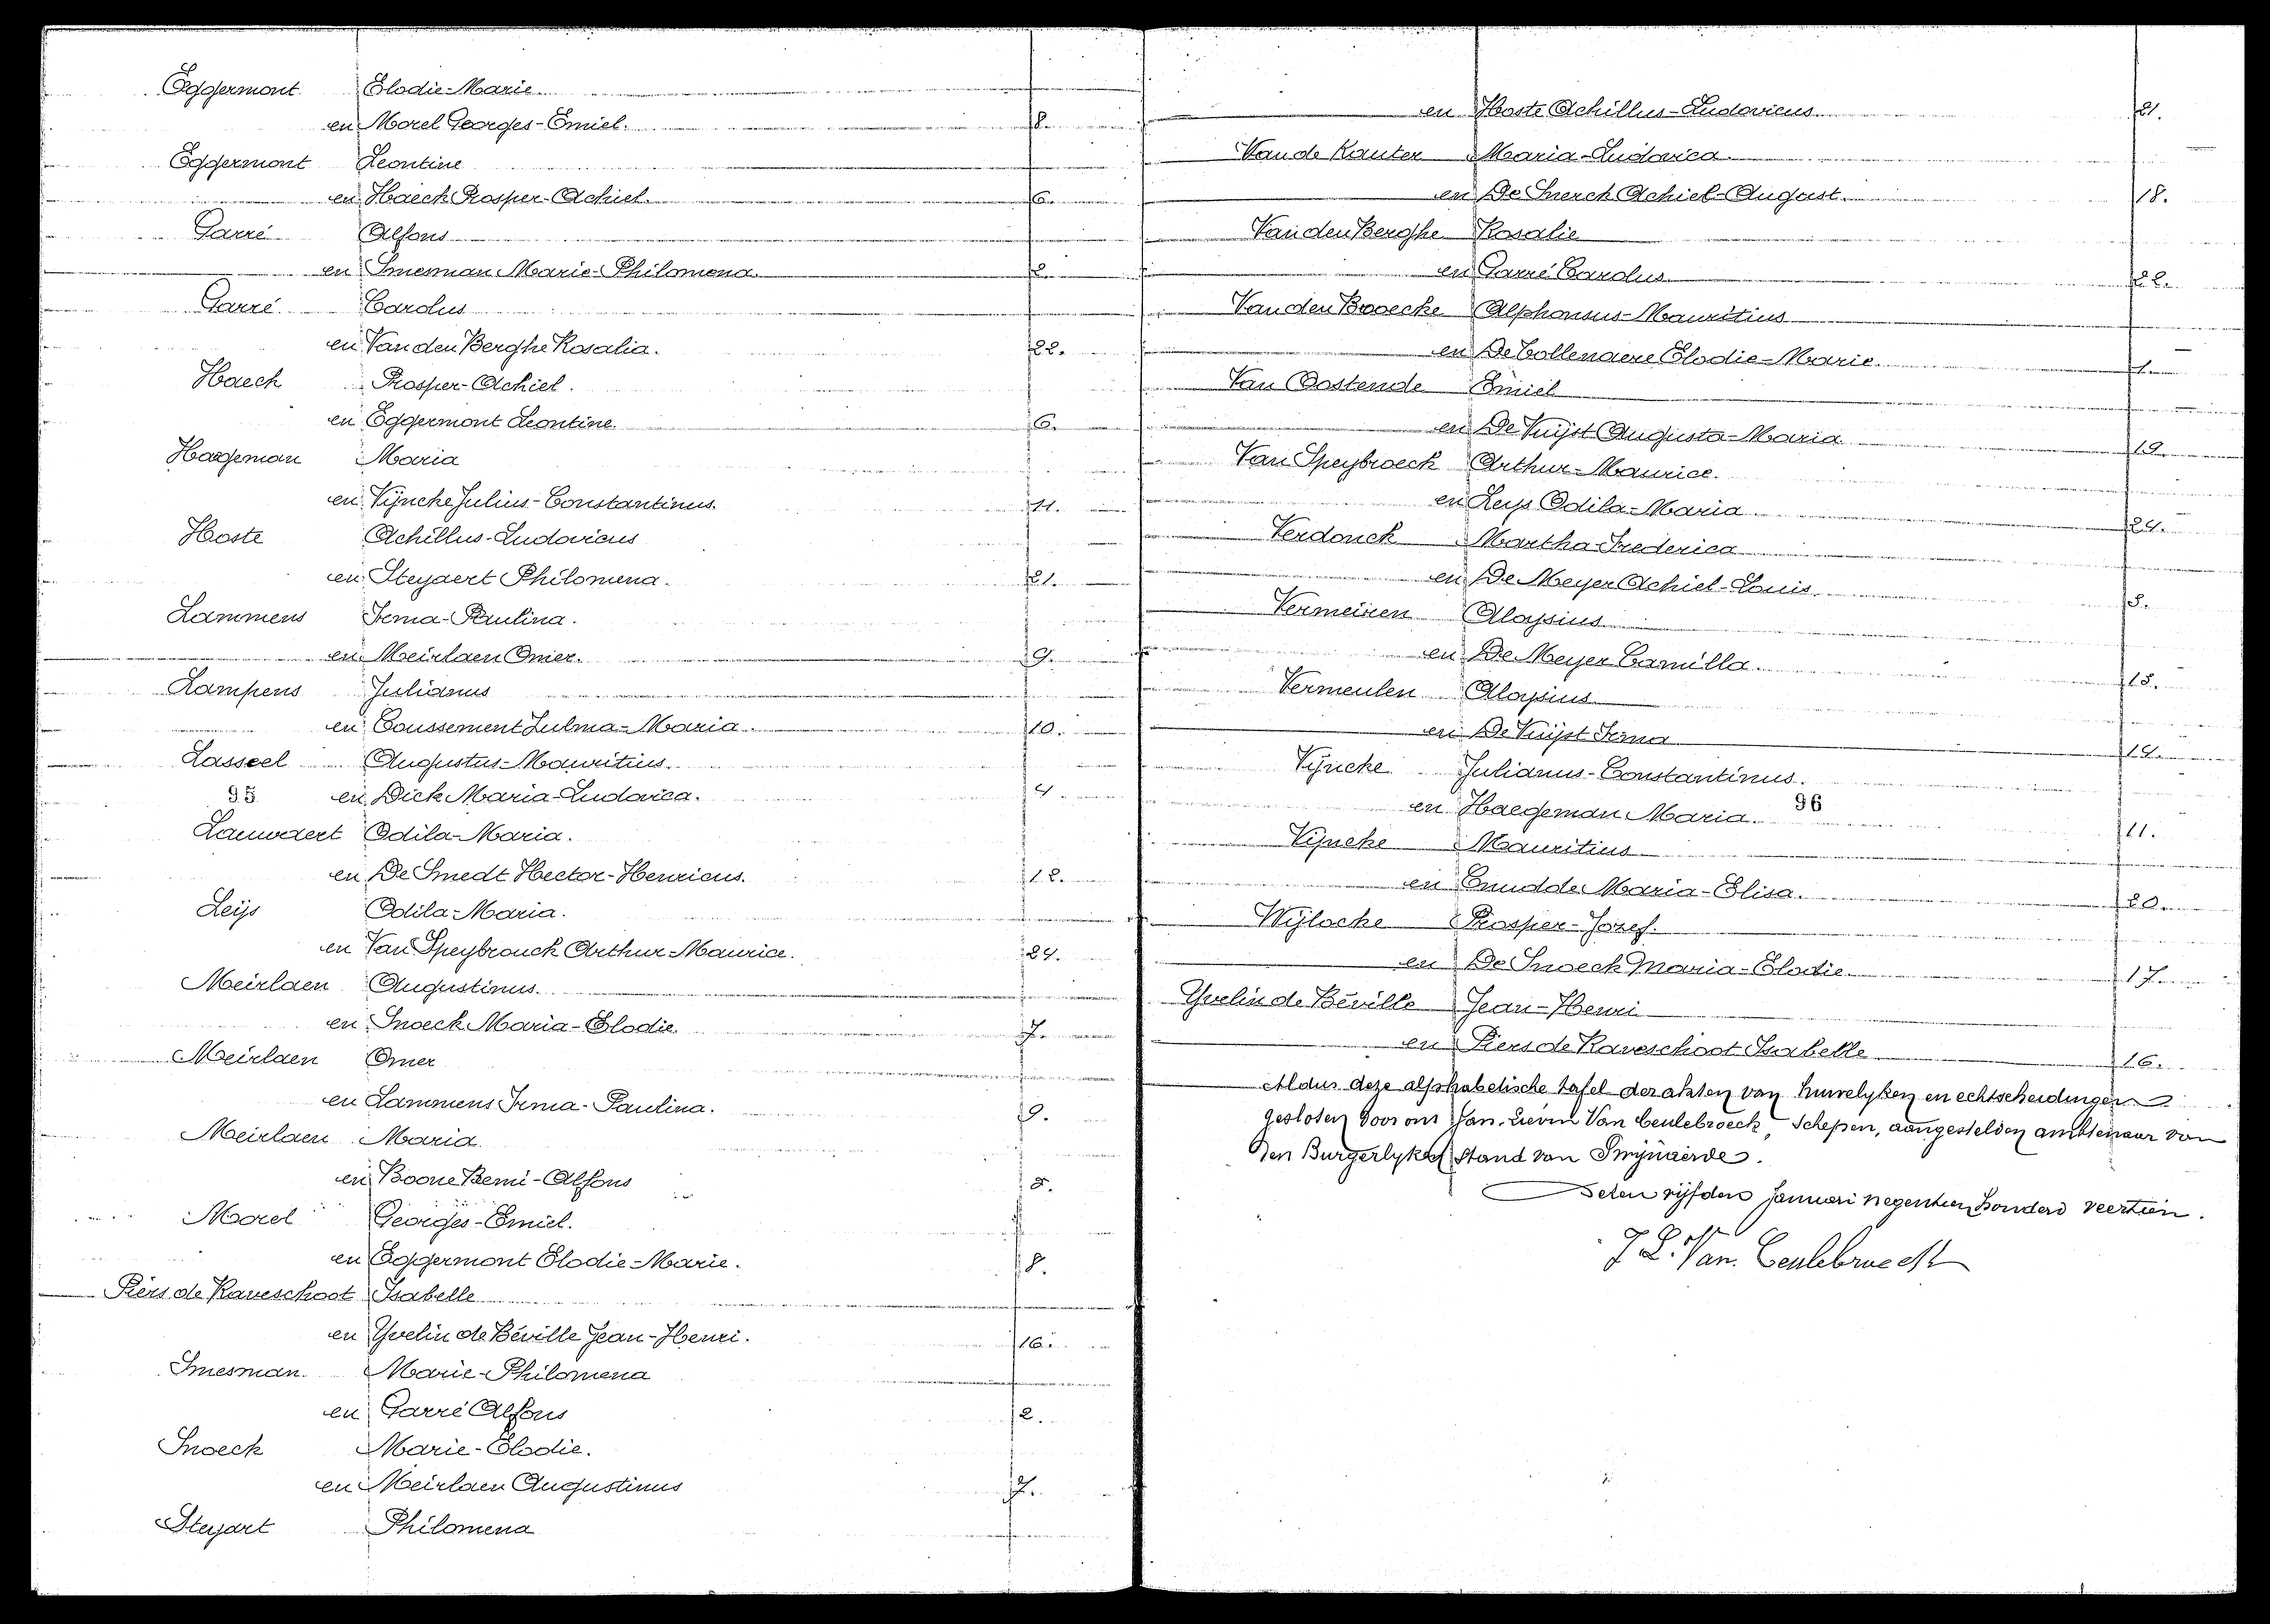 Eggermont Elodie-Marie
en Morel Georges-Emiel. 8.
Eggermont Leontine
en Haeck Prosper-Achiel. 6.
Garré Alfons
en Smesman Marie-Philomena. 2.
Garré Carolus
en Van den Berghe Rosalia. 22.
Haeck Prosper-Achiel.
en Eggermont Leontine. 6.
Haegeman Maria
en Vijncke Julius-Constantinus. 11.
Hoste Achillus-Ludovicus
en Steyaert Philomena. 21.
Lammens Irma-Paulina.
en Meirlaen Omer. 9.
Lampens Julianus
en Coussement Zulma-Maria. 10.
Lasseel Augustus-Mauritius.
95 en Dick Maria-Ludovica. 4
Lauwaert Odila-Maria.
en De Smedt Hector-Henricus. 12.
Leijs Odila-Maria.
en Van Speybrouck Arthur-Maurice. 24.
Meirlaen Augustinus.
en Snoeck Maria-Elodie. 7.
Meirlaen Omer
en Lammens Irma-Paulina. 9.
Meirlaen Maria.
en Boone Remi-Alfons 5.
Morel Georges-Emiel.
en Eggermont Elodie-Marie. 8.
Piers de Raveschoot Isabelle
en Yvelin de Béville Jean-Henri. 16.
Smesman. Marie-Philomena
en Garré Alfons 2.
Snoeck Marie-Elodie.
en Meirlaen Augustinus 7.
Steyart Philomena
en Hoste Achillus-Ludovicus 21.
Van de Kauter Maria-Ludovica.
en De Snerck Achiel-August. 18.
Van den Berghe Rosalie
en Garré Carolus 22.
Van den Broecke Alphonsus-Mauritius
en De Collenaere Elodie-Marie. 1.
Van Oostende Emiel
en De Vuijst Augusta-Maria 19.
Van Speybroeck Arthur-Maurice.
en Leys Odila-Maria 24.
Verdonck Martha-Frederica
en De Meyer Achiel-Louis. 3.
Vermeiren Aloysius
en De Meyer Camilla. 13.
Vermeulen Aloysius
en De Vuijst Irma 14.
Vijncke Julianus-Constantinus.
en Haegeman Maria. 96 11.
Vijncke Mauritius
en Cnudde Maria-Elisa. 20.
Wijlocke Prosper-Jozef.
en De Snoeck Maria-Elodie 17.
Yvelin de Béville Jean-Henri
en Piers de Raveschoot Isabelle 16.
Aldus deze alphabetische tafel der akten van huwelyken en echtscheidingen
gesloten door ons Jan-Lievin Van Ceulebroeck, Schepen, aangestelden ambtenaar van
den Burgerlyken stand van Smijnaerde.
Deten vijfden januari negentien honderd veertien.
J L. Van Ceulebroeck